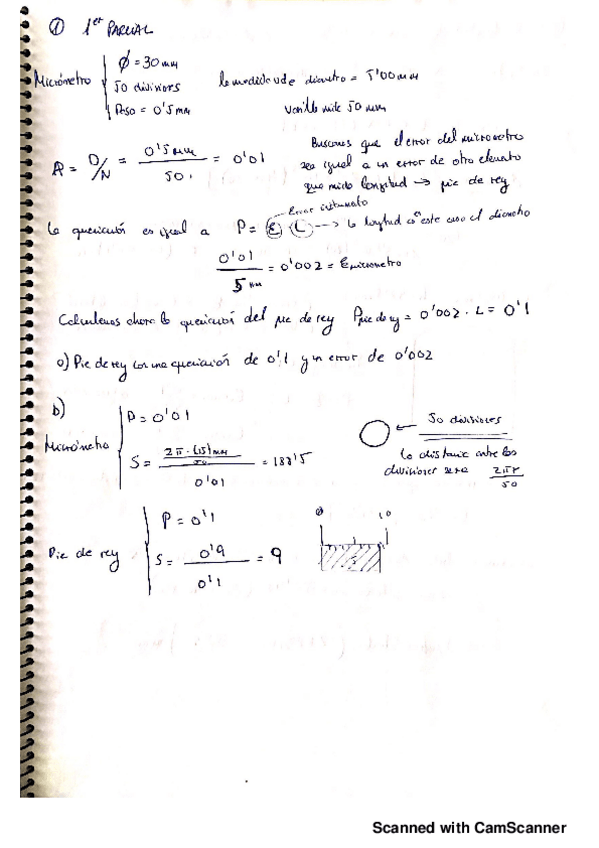 ① 1er PARCIAL
Micrómetro
φ = 30 mm
50 divisiones
Paso = 0'5 mm
la medida de diametro = 5'00 mm
varilla mide 50 mm
A = D/N = 0'5 mm / 50 = 0'01
Buscamos que el error del micrometro
sea igual a un error de otro elemento
que mida longitud → pie de rey
La apreciación es igual a P = E · L → la longitud en este caso el diametro
Error instrumento
0'01 / 5 mm = 0'002 = Emicrometro
Calculamos ahora la apreciación del pie de rey Ppie de rey = 0'002 · L = 0'1
a) Pie de rey con una apreciación de 0'1 y un error de 0'002
b)
Micrómetro
P = 0'01
S = 2π · (15) mm / 50 / 0'01 = 188'5
50 divisiones
la distancia entre las
divisiones sera 2πr / 50
Pie de rey
P = 0'1
S = 0'9 / 0'1 = 9
0 10
Scanned with CamScanner